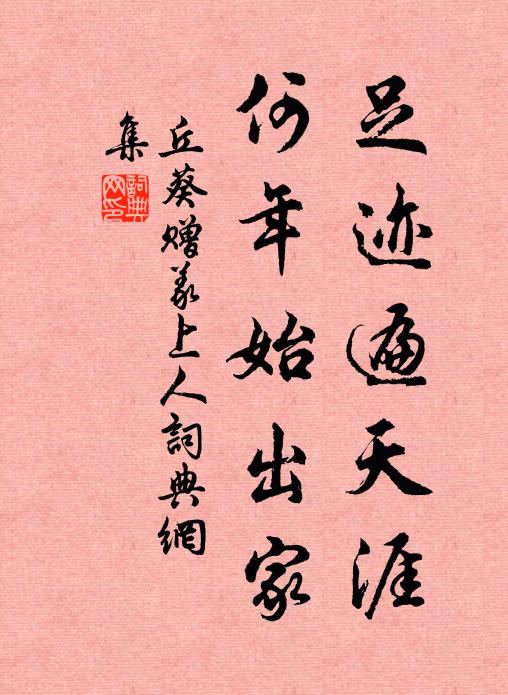 足迹遍天涯
何年始出家
丘葵赠义上人詞典網
集
詞典网印